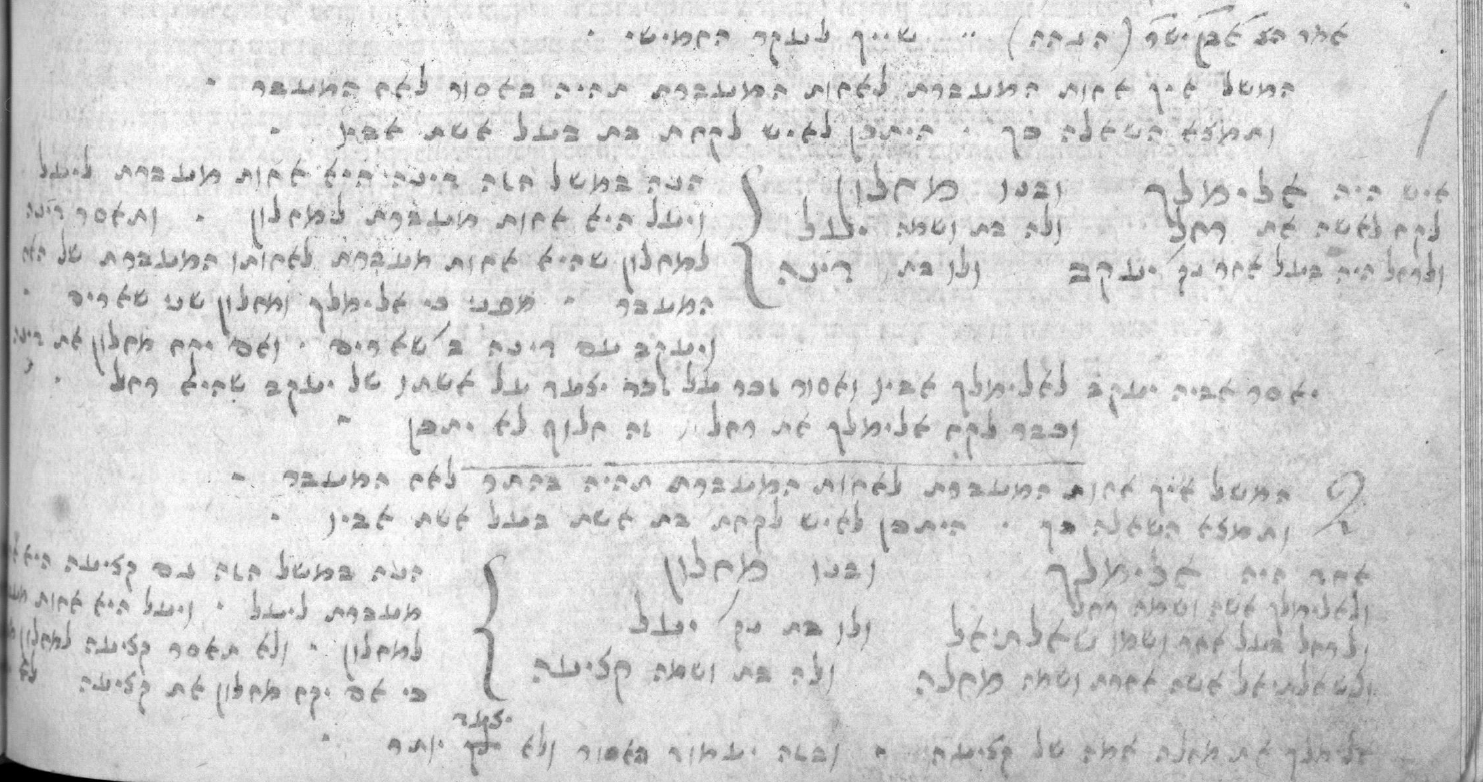 אחר הצ׳ (הנחה) שייך לעקר החמישי
המשל איך אחות המעברת לאחות המעברת תהיה באסור לאח המעבר
ותמצא השאלה כך היתכן לאיש לקחת בת בעל אשת אביו
איש היה אלימלך ובנו מחלון
לקח לאשה את רחל ולה בת ושמה יעל
ולרחל היה בעל אחר יעקב ולו בת רינה
הנה במשל הזה רינה היא אחות מעברת ליעל
ויעל היא אחות מעברת למחלון ותאסר רינה
למחלון שהיא אחות מעברת לאחותו המעברת של האח
המעבר מפני כי אלימלך ומחלון שני שארים
ויעקב עם רינה ב׳ שארים ואם יקח מחלון את רינה
יאסר אביה יעקב לאלימלך אביו ואסור זכר על זכר יצער על אשתו של יעקב שהיא רחל
וכבר לקח אלימלך את רחל זה חלוף לא יתכן
המשל איך אחות המעברת לאחות המעברת תהיה בהתר לאח המעבר
ותמצא השאלה כך היתכן לאיש לקחת בת אשת בעל אשת אביו
אחד היה אלימלך ובנו מחלון
ולאלימלך אשה ושמה רחל
ולרחל בעל אחר ושמו שאלתיאל ולו בת יעל
ולשאלתיאל אשה אחרת ושמה מחלה ולה בת ושמה קציעה
הנה במשל הזה עם קציעה היא
מעברת ליעל ויעל היא אחות
למחלון ולא תאסר קציעה למחלון
כי אם יקח מחלון את קציעה לא
יצער
אלימלך את מחלה אמה של קציעה ובזה יעמוד האסור ולא יותר